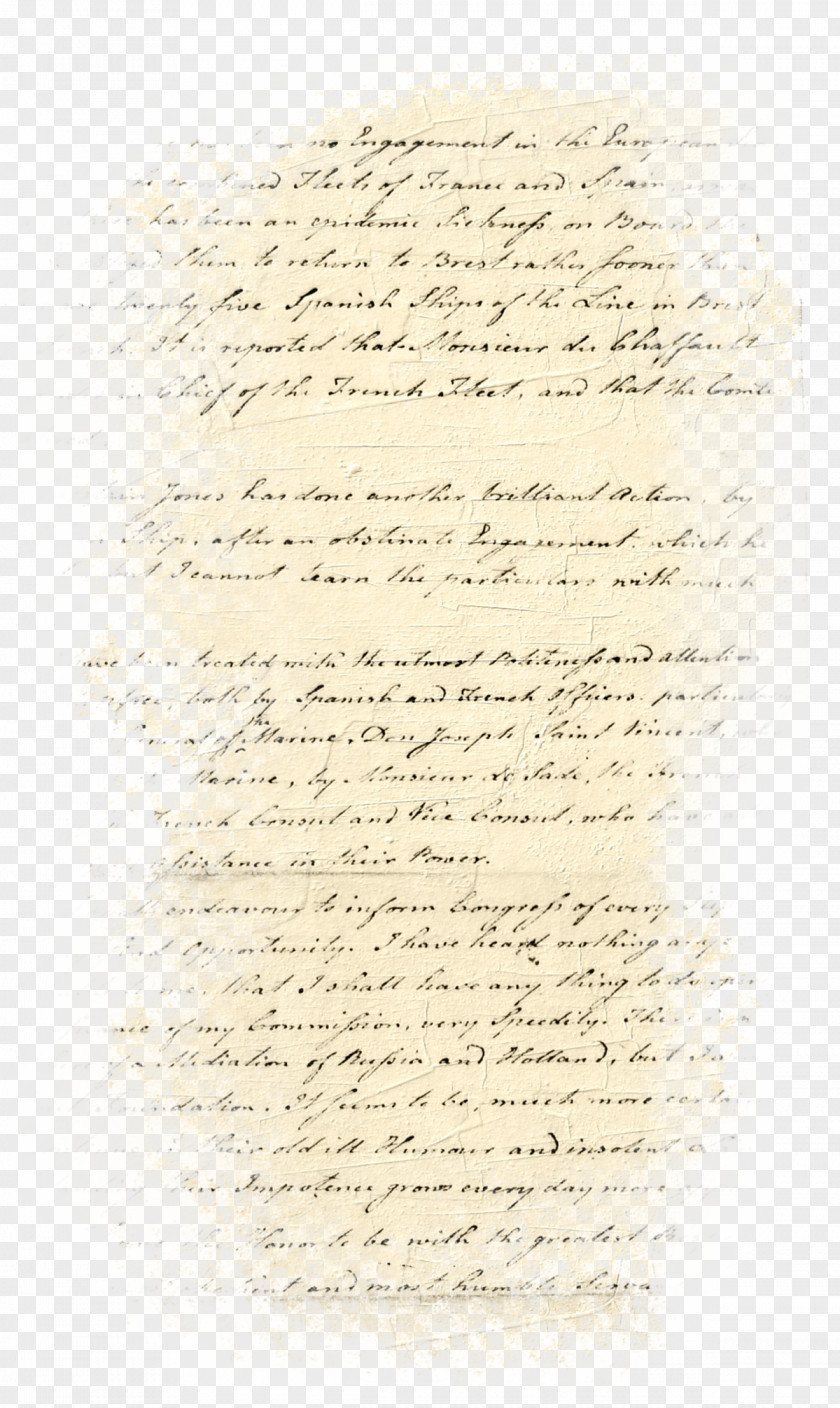 no Engagement in the European
Fleets of France and Spain
has been an epidemic Sickness, on Board
them to return to Brest rather sooner than
twenty five Spanish Ships of the Line in Brest
It is reported that Monsieur du Chaffault
Chief of the French Fleet, and that the Comte
Jones has done another brilliant Action, by
Ship, after an obstinate Engagement. which he
but I cannot learn the particulars with much
been treated with the utmost Politeness and attention
both by Spanish and French Officers. particul
of the Marine, Don Joseph Saint Vincent,
Marine, by Monsieur de Sade, the
French Consul and Vice Consul, who have
assistance in their Power.
endeavour to inform Congress of every
Opportunity. I have heard nothing
me, that I shall have any thing to do
of my Commission, very Speedily. The
of a Mediation of Russia and Holland, but
It seems to be, much more
their old ill Humour and insolent
their Impotence grows every day more
Honor to be with the greatest
and most humble Serva